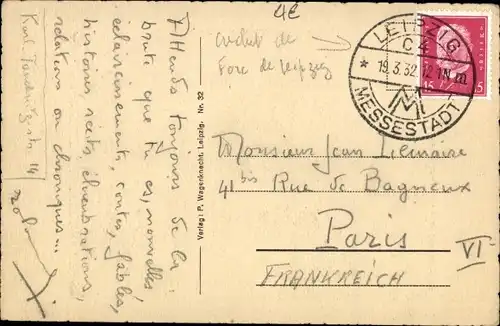 4€
cachet de
Foire de Leipzig
LEIPZIG
C 4
* 19.3.32. 12-1N m
MESSESTADT
15 15
Karl Tauchnitzstr. 14
J'attends toujours de la
brute que tu es, nouvelles,
éclaircissements, contes, fables,
histoires, récits, élucubrations,
relations ou chroniques...
Verlag: P. Wagenknecht, Leipzig. Nr. 32
Monsieur Jean Lemaire
41 bis Rue de Bagneux
Paris
VI
FRANKREICH